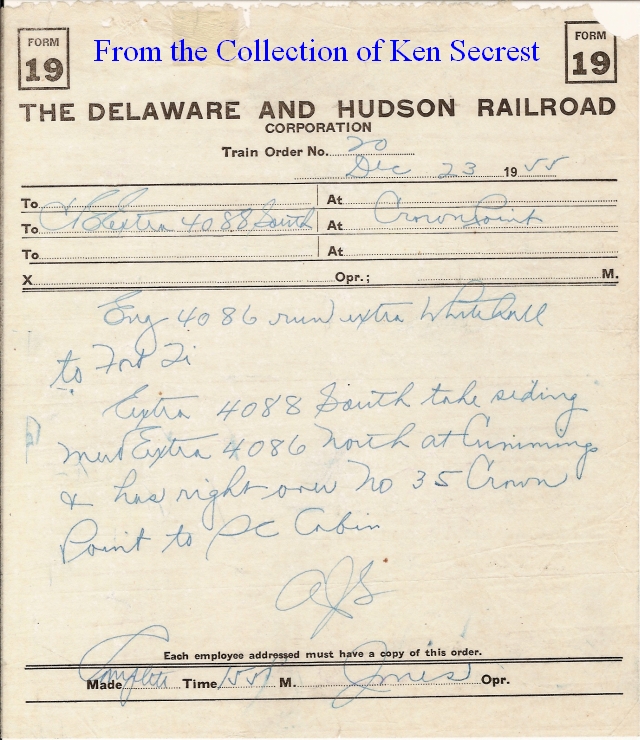 FORM
19
From the Collection of Ken Secrest
FORM
19
THE DELAWARE AND HUDSON RAILROAD
CORPORATION
Train Order No. 20
Dec 23 1955
To At
To C&E Extra 4088 South At Crown Point
To At
X Opr.; M.
Eng 4086 run extra Whitehall
to Fort Ti
Extra 4088 South take siding
meet Extra 4086 North at Cummings
& has right over No 35 Crown
Point to PC Cabin
AJS
Each employee addressed must have a copy of this order.
Made Complete Time M. Jones Opr.